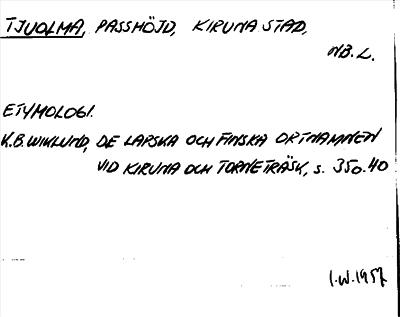 TJUOLMA, PASSHÖJD, KIRUNA STAD,
NB.L.
ETYMOLOGI.
K.B. WIKLUND, DE LAPSKA OCH FINSKA ORTNAMNEN
VID KIRUNA OCH TORNETRÄSK, s. 350.40
I.W. 1957